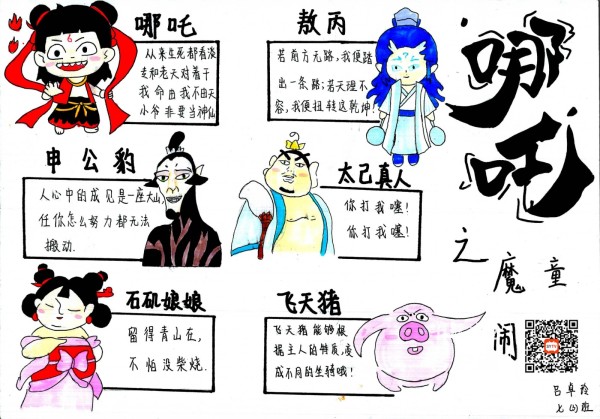 哪吒
从来生死都看淡
专和老天对着干
我命由我不由天
小爷非要当神仙
敖丙
若前方无路,我便踏
出一条路;若天理不
容,我便扭转这乾坤!
申公豹
人心中的成见是一座大山,
任你怎么努力都无法
搬动.
太己真人
你打我噻!
你打我噻!
石矶娘娘
留得青山在,
不怕没柴烧.
飞天猪
飞天猪能够根
据主人的特质,变
成不同的坐骑哦!
哪吒
之
魔童
闹
吕卓